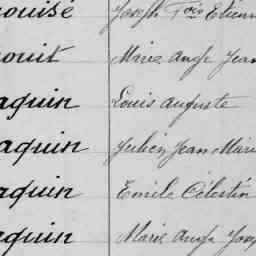 ouisé Joseph Fois Etienn
ouit Marie Ange Jean
aquin Louis Auguste
aquin Julien Jean Marie
aquin Emile Célestin
aquin Marie Ange Jose